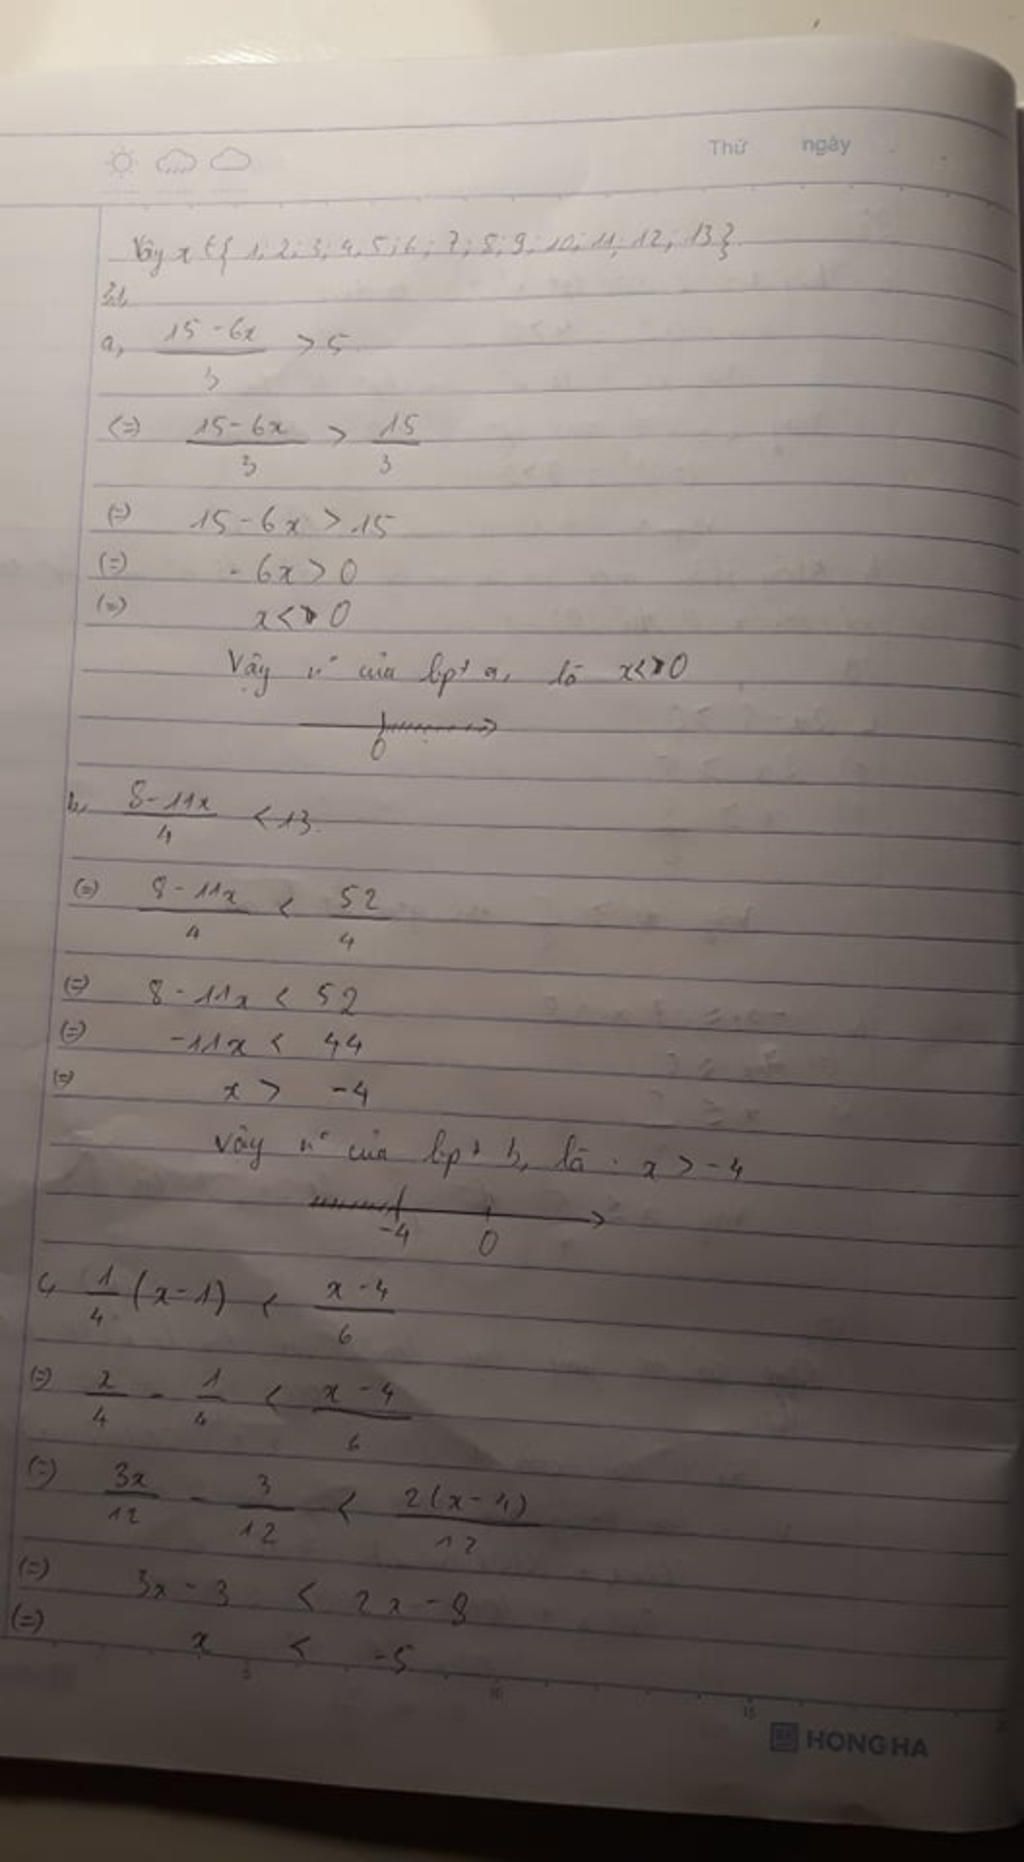 Thứ ngày
Vậy x ∈ { 1; 2; 3; 4, 5; 6; 7; 8; 9; 10; 11; 12; 13 }
a, (15 - 6x)/3 > 5
<=> (15 - 6x)/3 > 15/3
(=) 15 - 6x > 15
(=) - 6x > 0
(=) x < 0
Vậy n° của bpt a, là x < 0
0
b, (8 - 11x)/4 < 13
(=) (8 - 11x)/4 < 52/4
(=) 8 - 11x < 52
(=) -11x < 44
(=) x > -4
Vậy n° của bpt b, là x > -4
-4 0
c, 1/4 (x - 1) < (x - 4)/6
(=) x/4 - 1/4 < (x - 4)/6
(=) 3x/12 - 3/12 < 2(x - 4)/12
(=) 3x - 3 < 2x - 8
(=) x < -5
5 10 15
HONG HA